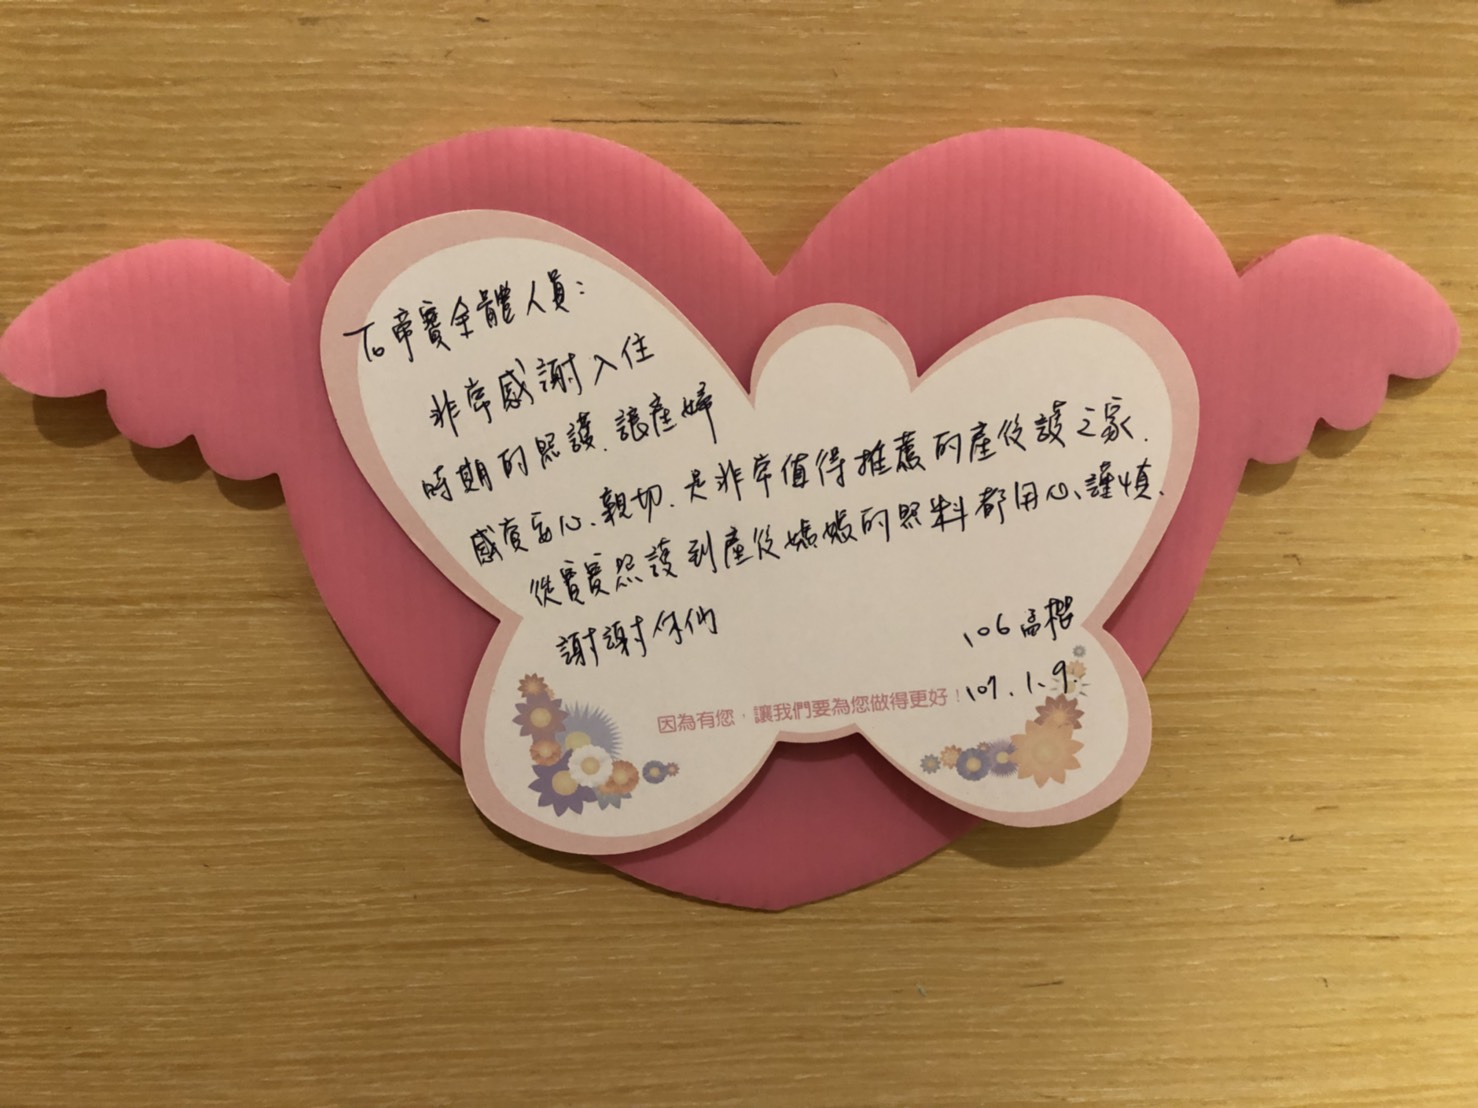 To 帝寶全體人員:
非常感謝入住
時期的照護、讓產婦
感覺安心、親切、是非常值得推薦的產後護之家.
從寶寶照護到產後媽媽的照料都用心、謹慎.
謝謝你們
106 孟
107.1.9.
因為有您,讓我們要為您做得更好!